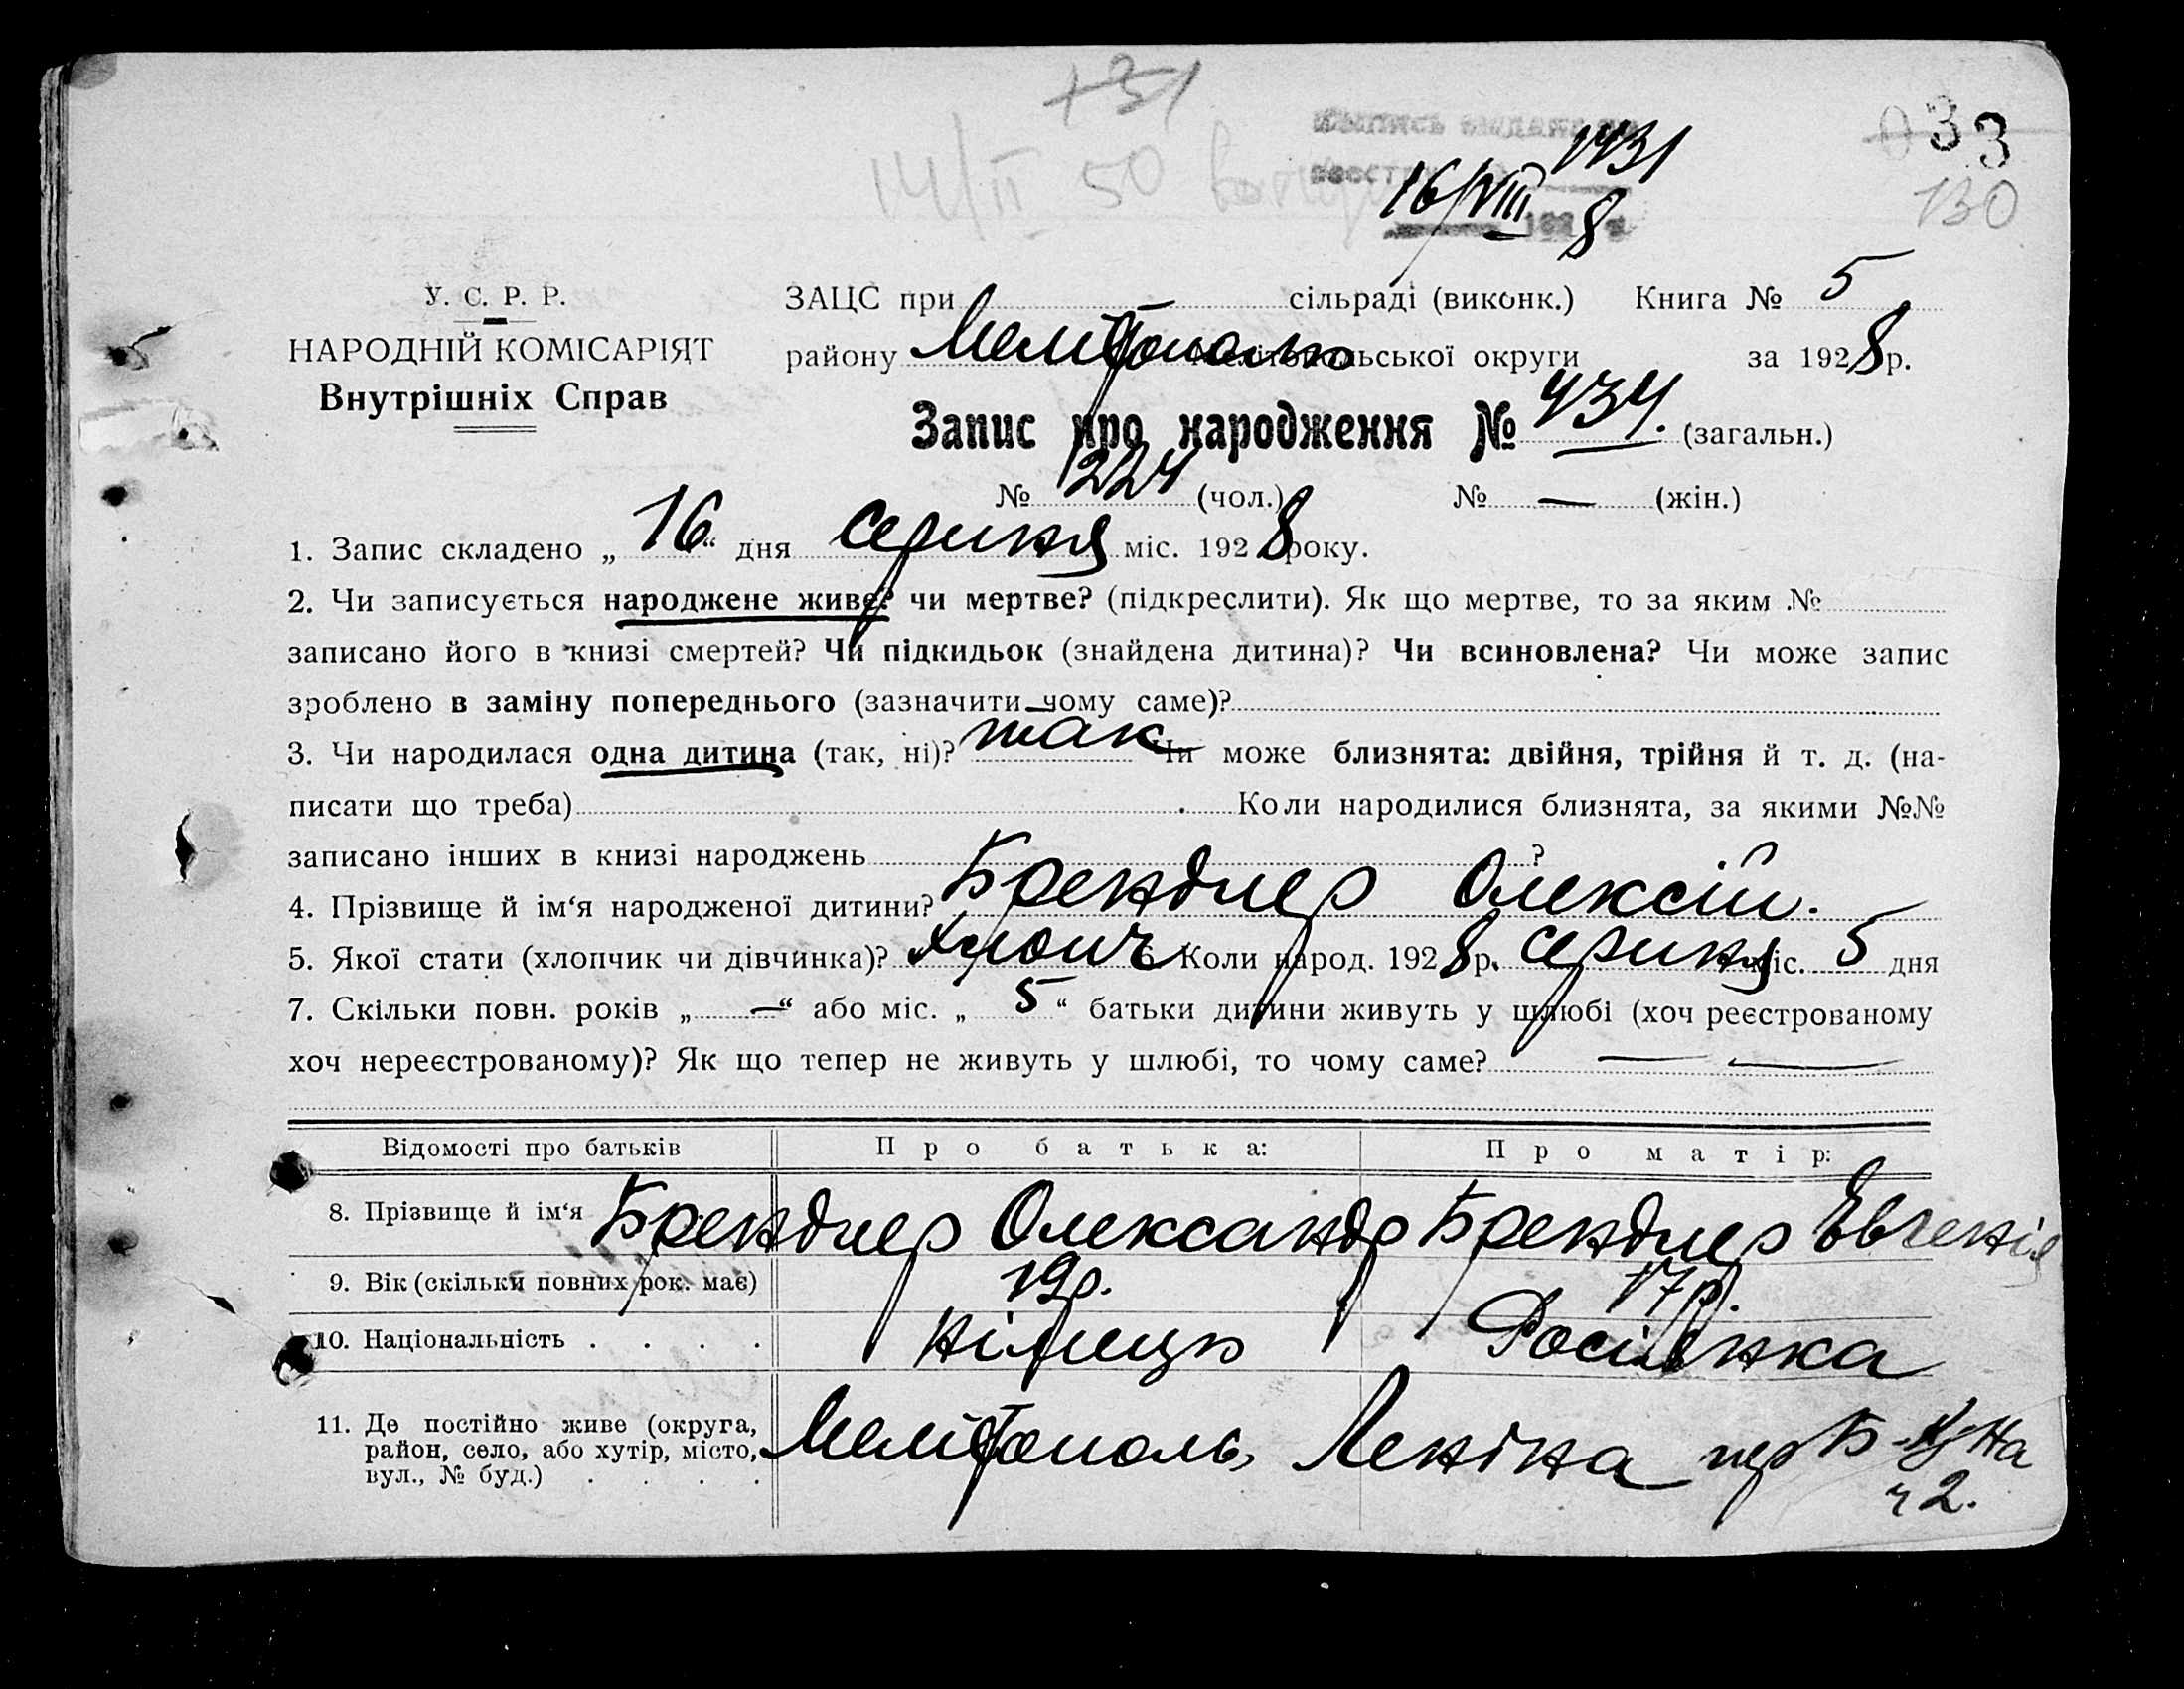 +31
033
14/II 50
выпись выдана
1431
16/VIII 8
130
У. С. Р. Р.
НАРОДНІЙ КОМІСАРІЯТ
Внутрішніх Справ
ЗАЦС при сільраді (виконк.) Книга № 5
району Мелітополь Мелітопольської округи за 1928 р.
Запис про народження № 434. (загальн.)
№ 224 (чол.) № — (жін.)
1. Запис складено „16“ дня серпня міс. 1928 року.
2. Чи записується народжене живе? чи мертве? (підкреслити). Як що мертве, то за яким №
записано його в книзі смертей? Чи підкидьок (знайдена дитина)? Чи всиновлена? Чи може запис
зроблено в заміну попереднього (зазначити чому саме)?
3. Чи народилася одна дитина (так, ні)? так Чи може близнята: двійня, трійня й т. д. (на-
писати що треба) Коли народилися близнята, за якими №№
записано інших в книзі народжень ?
4. Прізвище й ім‘я народженої дитини? Брендлер Олексій.
5. Якої стати (хлопчик чи дівчинка)? хлопч 6. Коли народ. 1928 р. серпня міс. 5 дня
7. Скільки повн. років „—“ або міс. „5“ батьки дитини живуть у шлюбі (хоч реєстрованому
хоч нереєстрованому)? Як що тепер не живуть у шлюбі, то чому саме? — —
Відомості про батьків Про батька: Про матір:
8. Прізвище й ім‘я Брендлер Олександр Брендлер Євгенія
9. Вік (скільки повних рок. має) 19р. 17р.
10. Національність . . . . німець Росіянка
11. Де постійно живе (округа,
район, село, або хутір, місто,
вул., № буд.) . . . .
Мелітополь, Леніна пер
ч 2.